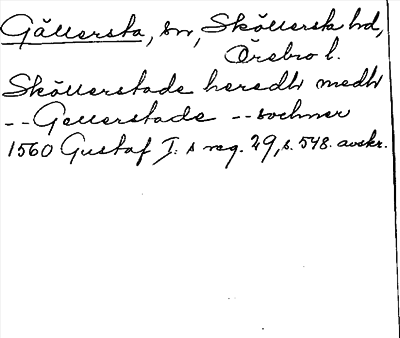 Gällersta, sn, Sköllersta hd,
Örebro l.
Sköllerstade heredh medh
-- Gellerstade -- sochner
1560 Gustaf I:s reg. 29, s. 548. avskr.